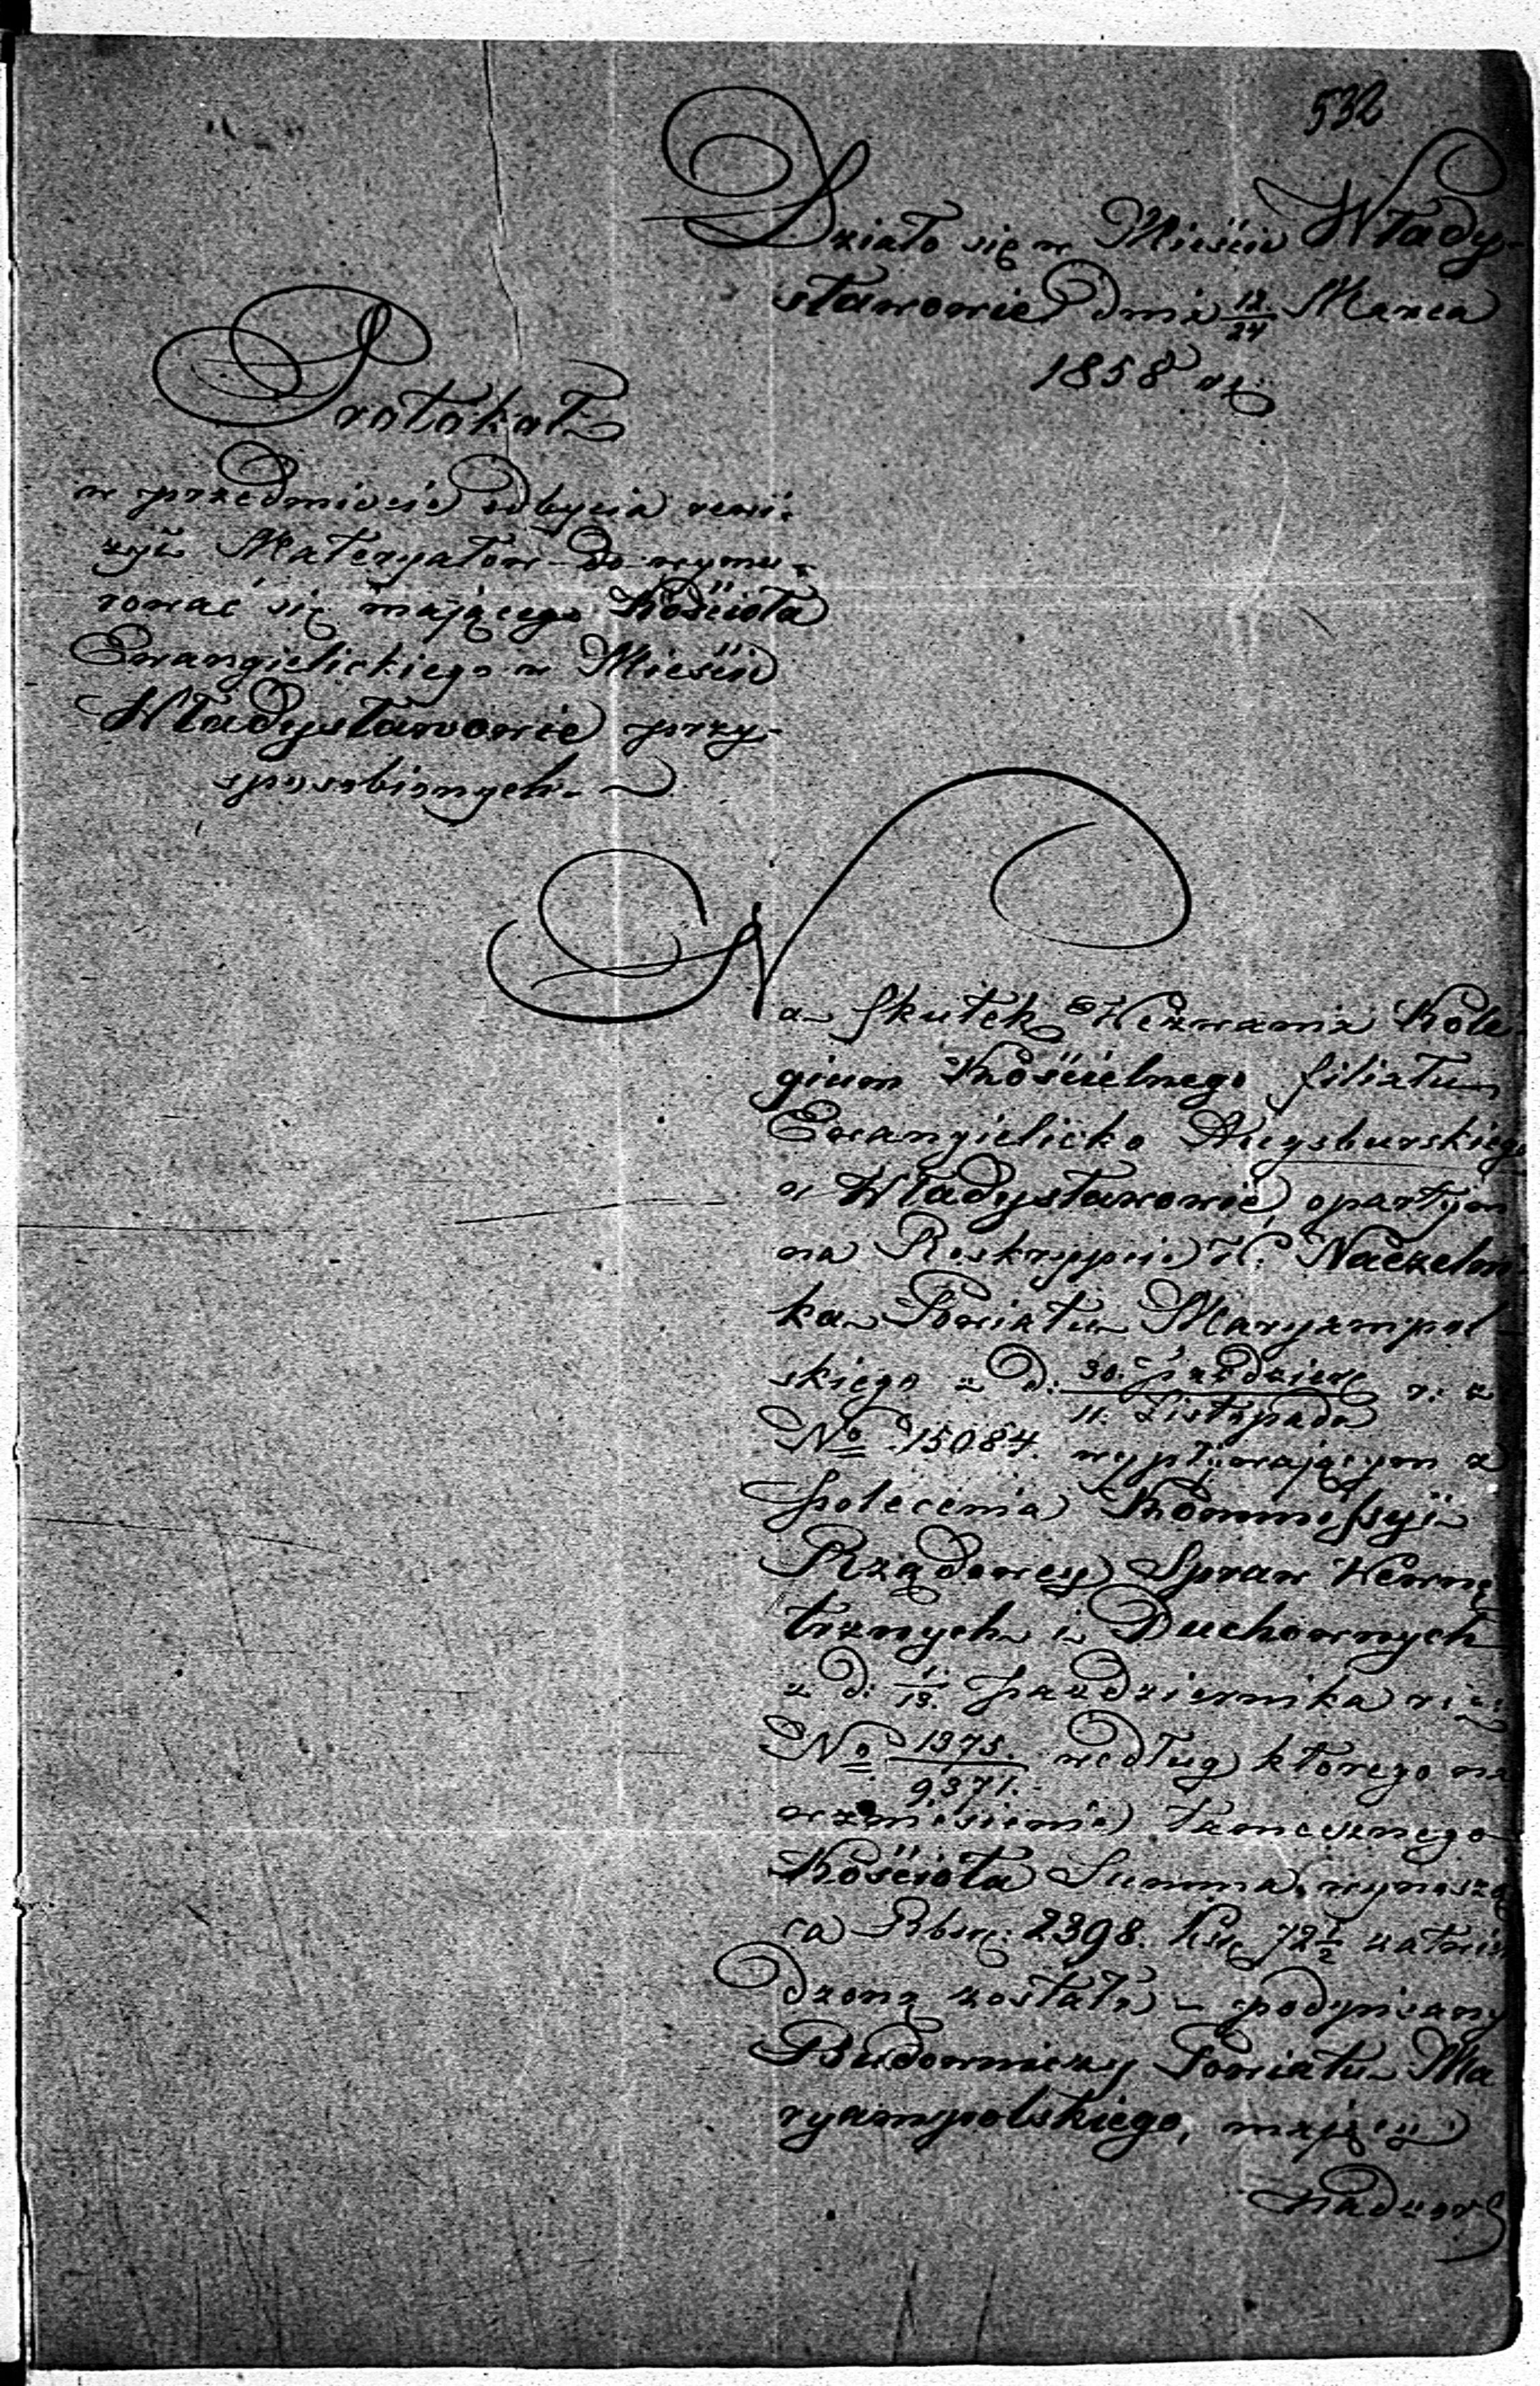 532
Działo się w Mieście Włady-
sławowie dnia 12/24 Marca
1858 r.
Protokół
w przedmiocie odbycia rewi:
zyi Materyałow do wymu:
rować się mającego Kościoła
Ewangielickiego w Mieście
Władysławowie przy-
sposobionych.
Na skutek Wezwania Kole
gium Kościelnego filiału
Ewangielicko Augsburskiego
w Władysławowie, opartym
na Reskrypcie W. Naczelni
ka Powiatu Maryampol-
skiego z d: 30. Paździer / 11. Listopada r: z
No 15084. wypływającym z
polecenia Kommissyi
Rządowey Spraw Wewnę
trznych i Duchownych
z d: 1/13. Października r: z:
No 1375. / 9371. według którego na
wzniesienie tamecznego
Kościoła Summa, wynoszą
ca Rbsr: 2398. Ksr 72½ zatwier
dzoną została – podpisany
Budowniczy Powiatu Ma
ryampolskiego, mający
nadzor